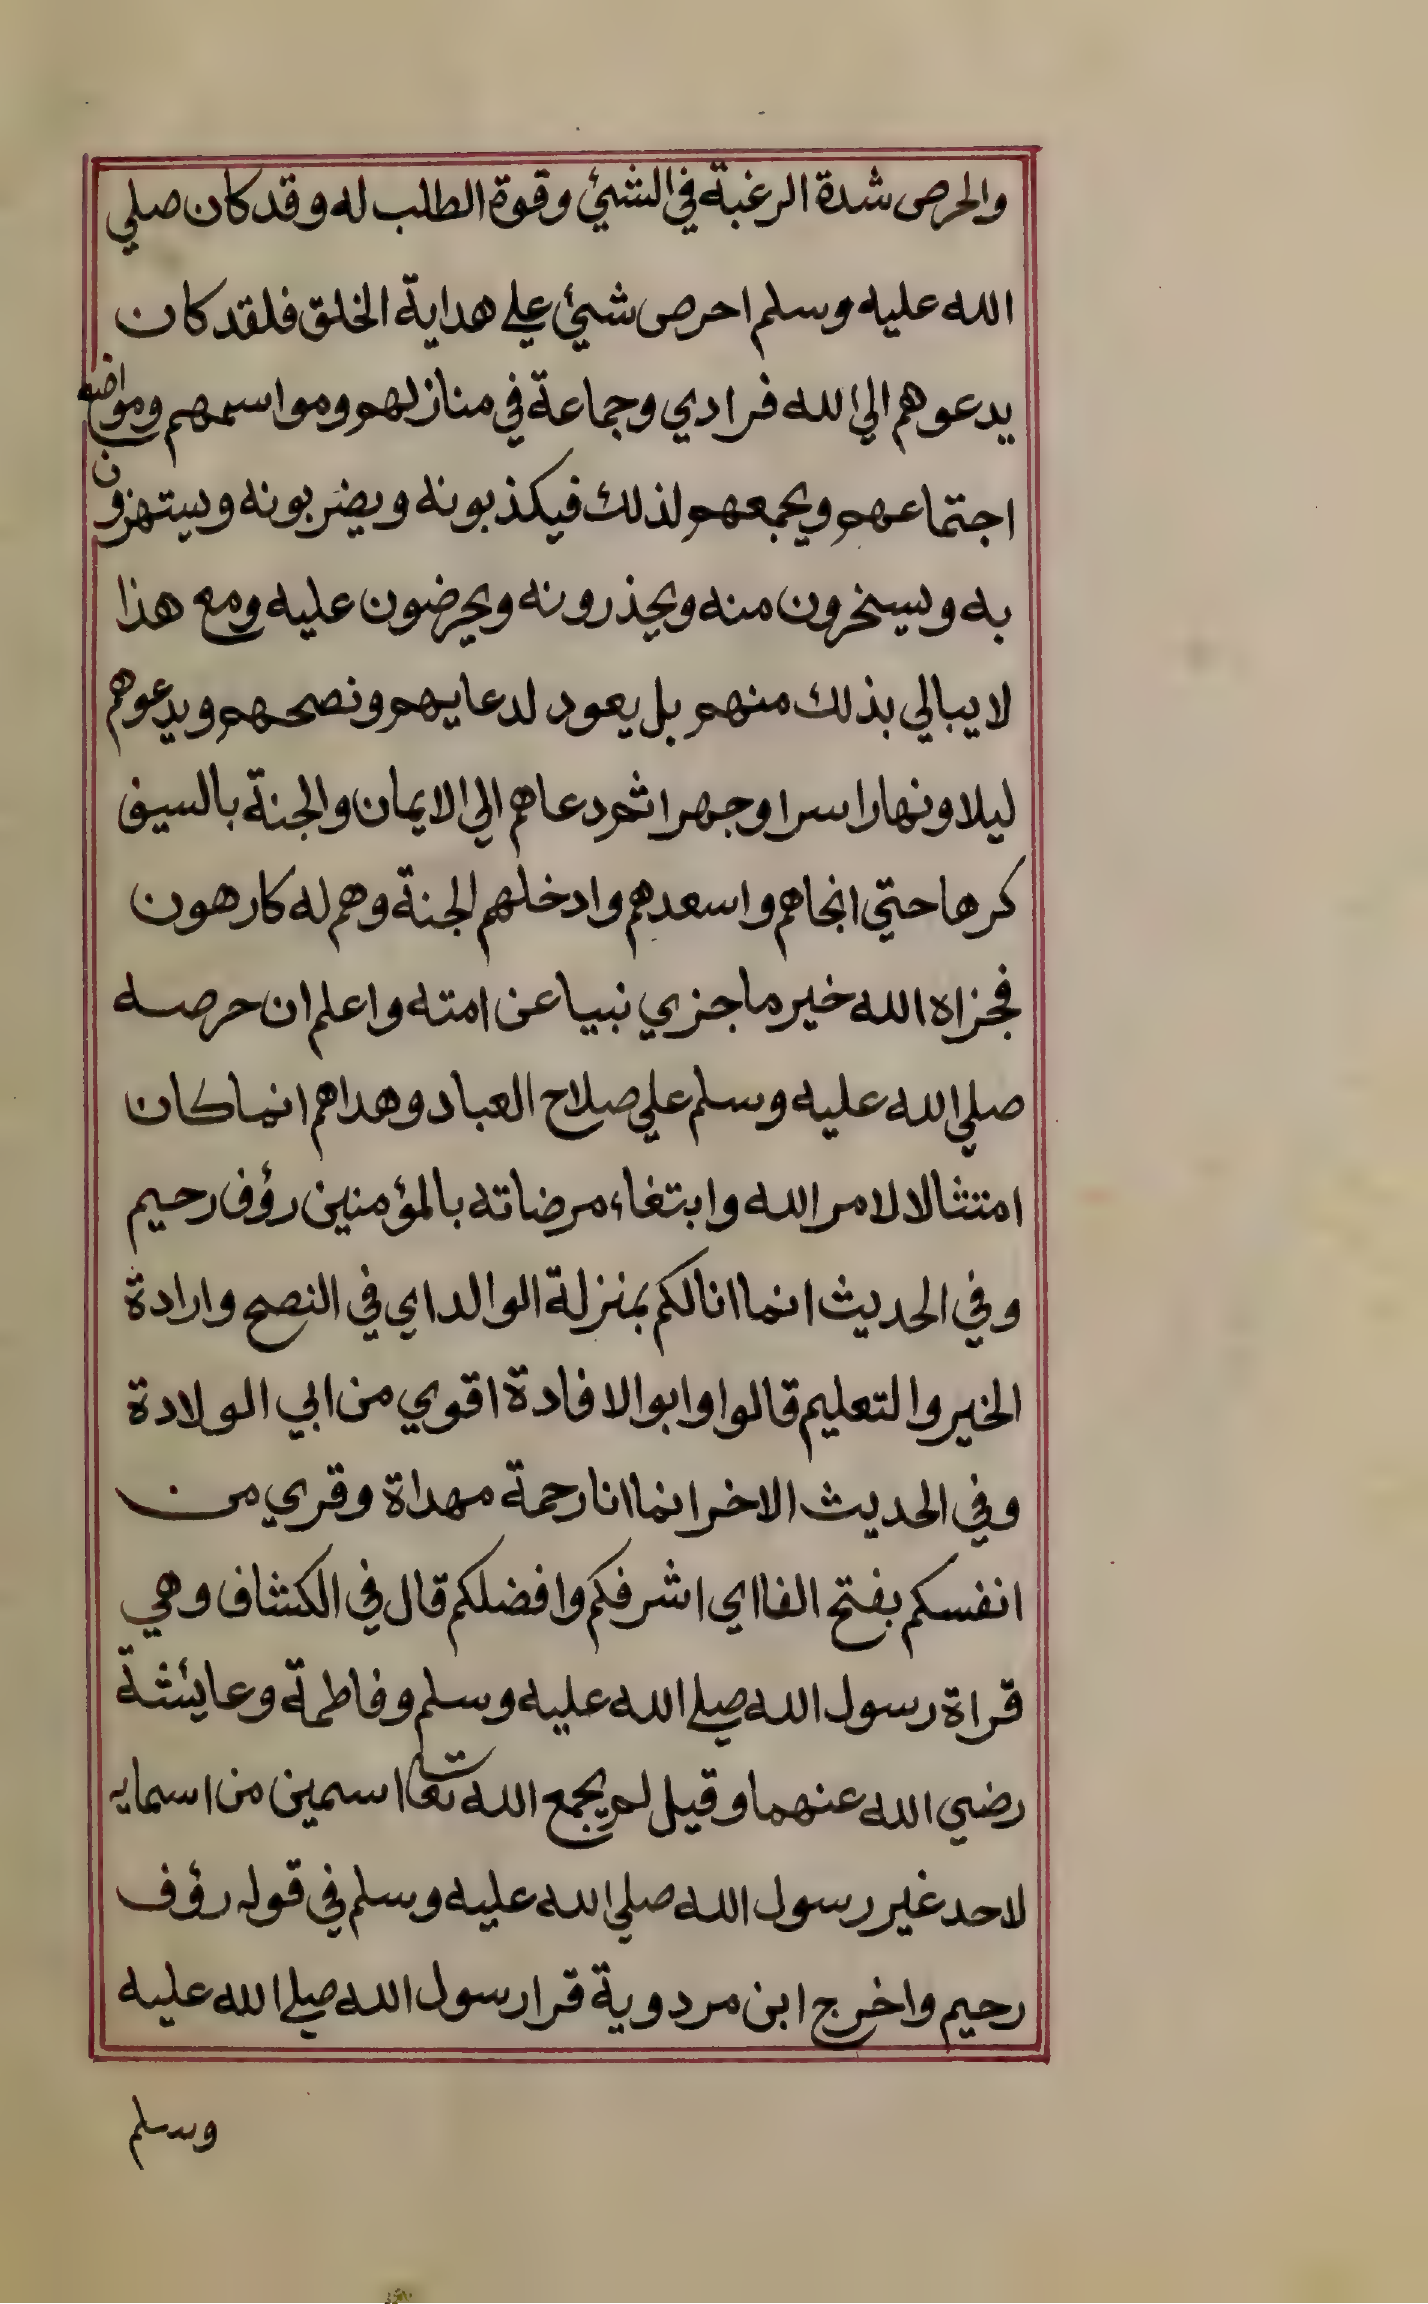 والحرص شدة الرغبة في الشئ وقوة الطلب له وقد كان صلي
الله عليه وسلم احرص شئ علي هداية الخلق فلقد كان
يدعوهم الي الله فرادي وجماعة في منازلهم ومواسمهم ومواضع
اجتماعهم ويجمعهم لذلك فيكذبونه ويضربونه ويستهزون
به ويسخرون منه ويحذرونه ويحرضون عليه ومع هذا
لا يبالي بذلك منهم بل يعود لدعايهم ونصحهم ويدعوهم
ليلا ونهارا سرا وجهرا ثم دعاهم الي الايمان والجنة بالسيف
كرها حتي انجاهم واسعدهم وادخلهم الجنة وهم له كارهون
فجزاه الله خير ما جزي نبيا عن امته واعلم ان حرصه
صلي الله عليه وسلم علي صلاح العباد وهداهم انما كان
امتثالا لامر الله وابتغاء مرضاته بالمؤمنين رؤف رحيم
وفي الحديث انما انا لكم بمنزلة الوالد اي في النصح وارادة
الخير والتعليم قالوا وابو الافادة اقوي من ابي الولادة
وفي الحديث الاخر انما انا رحمة مهداة وقري من
انفسكم بفتح الفا اي اشرفكم وافضلكم قال في الكشاف وهي
قراة رسول الله صلي الله عليه وسلم وفاطمة وعايشة
رضي الله عنهما وقيل لم يجمع الله تعا اسمين من اسمايه
لاحد غير رسول الله صلي الله عليه وسلم في قوله رؤف
رحيم واخرج ابن مردوية قرا رسول الله صلي الله عليه
وسلم